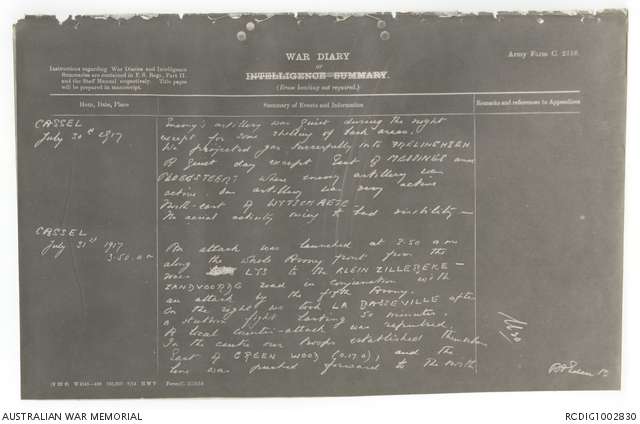 WAR DIARY
or
INTELLIGENCE SUMMARY.
(Erase heading not required.)
Army Form C. 2118.
Instructions regarding War Diaries and Intelligence
Summaries are contained in F. S. Regs., Part II.
and the Staff Manual respectively. Title pages
will be prepared in manuscript.
Hour, Date, Place
Summary of Events and Information
Remarks and references to Appendices
CASSEL
July 30th 1917
Enemy's artillery was quiet during the night
except for some shelling of back areas.
We projected gas successfully into
A quiet day except East of MESSINES and
PLOEGSTEERT where enemy artillery was
active. Our artillery was very active
North-East of WYTSCHAETE
No aerial activity owing to bad visibility —
CASSEL
July 31st 1917
3.50 a.m
An attack was launched at 3.50 a.m
along the whole Army front from the
River LYS to the KLEIN ZILLEBEKE —
ZANDVOORDE road in conjunction with
an attack by the Fifth Army.
On the right we took LA BASSEVILLE after
a stubborn fight lasting 50 minutes.
A local counter-attack was repulsed.
In the centre our troops established themselves
East of GREEN WOOD (O.17.d), and the
line was pushed forward to the North
AUSTRALIAN WAR MEMORIAL
RCDIG1002830